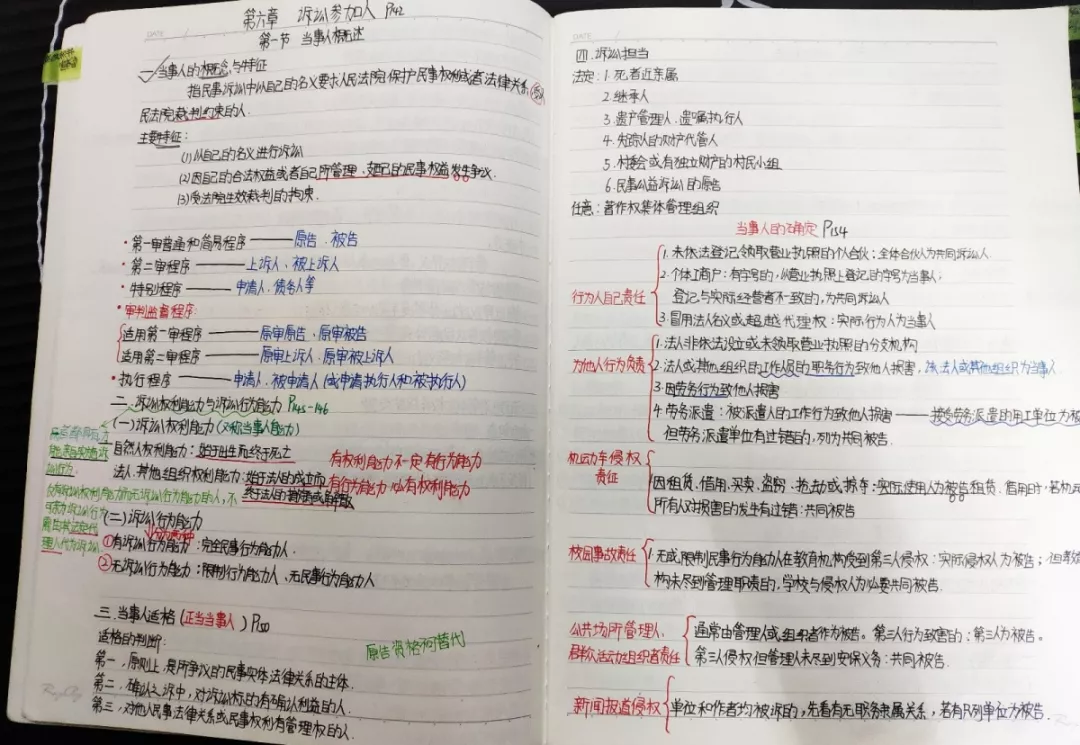 第六章 诉讼参加人 P142
第一节 当事人概述
一、当事人的概念与特征
指民事诉讼中以自己的名义要求人民法院保护民事权利或者法律关系、受人
民法院裁判约束的人.
主要特征:
(1)以自己的名义进行诉讼
(2)因自己的合法权益或者自己所管理、
的民事权益发生争议.
(3)受法院生效裁判的拘束.
·第一审普通和简易程序——原告、被告
·第二审程序——上诉人、被上诉人
·特别程序——申请人、债务人等
·审判监督程序:
适用第一审程序——原审原告、原审被告
适用第二审程序——原审上诉人、原审被上诉人
·执行程序——申请人、被申请人(或申请执行人和被执行人)
二、诉讼权利能力与诉讼行为能力 P145-146
(一)诉讼权利能力(又称当事人能力)
自然人权利能力:始于出生而终于死亡
有权利能力不一定有行为能力
法人、其他组织权利能力:始于法人的成立而
有行为能力必有权利能力
仅有诉讼权利能力而无诉讼行为能力的人,不
(二)诉讼行为能力
分为两种
①有诉讼行为能力:完全民事行为能力人.
②无诉讼行为能力:限制行为能力人、无民事行为能力人
三、当事人适格(正当当事人)
适格的判断:
原告资格不可替代
第一,原则上,是所争议的民事实体法律关系的主体.
第二,确认之诉中,对诉讼标的有确认利益的人.
第三,对他人民事法律关系或民事权利有管理权的人.
四、诉讼担当
法定:1.死者近亲属
2.继承人
3.遗产管理人、遗嘱执行人
4.失踪人的财产代管人
5.村委会或有独立财产的村民小组
6.民事公益诉讼的原告
任意:著作权集体管理组织
当事人的确定 P154
行为人自己责任
1.未依法登记领取营业执照的个合伙:全体合伙人为共同诉讼人.
2.个体工商户:有字号的,以营业执照上登记的字号为当事人;
登记与实际经营者不一致的,为共同诉讼人
3.冒用法人名义或超越代理权:实际行为人为当事人
为他人行为负责
1.法人非依法设立或未领取营业执照的分支机构
2.法人或其他组织的工作人员的职务行为致他人损害,该法人或其他组织为当事人
3.因劳务行为致他人损害
4.劳务派遣:被派遣人的工作行为致他人损害——接受劳务派遣的用工单位为被
但劳务派遣单位有过错的,列为共同被告.
机动车侵权
责任
因租赁、借用、买卖、盗窃、抢劫或
:实际使用人为被告租赁、借用时,若机动
所有人对损害的发生有过错:共同被告
校园事故责任
1.无或限制民事行为能力人在教育机构受到第三人侵权:实际侵权人为被告;但教
构未尽到管理职责的,学校与侵权人为必要共同被告.
公共场所管理人、
群众活动组织者责任
通常由管理人或组织者作为被告。第三人行为致害的:第三人为被告。
第三人侵权但管理人未尽到安保义务:共同被告.
新闻报道侵权
单位和作者均被诉的,先看有无职务隶属关系,若有只列单位为被告.